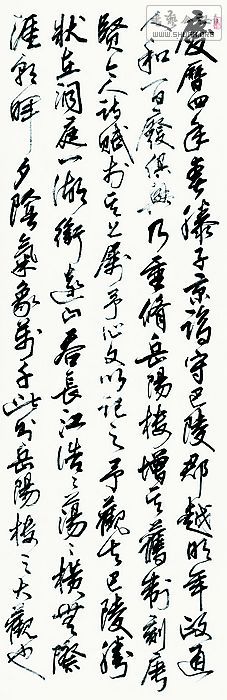 慶曆四年春滕子京謫守巴陵郡越明年政通
人和百廢俱興乃重脩岳陽樓增其舊制刻唐
賢今人詩賦於其上屬予作文以記之予觀夫巴陵勝
狀在洞庭一湖銜遠山吞長江浩〻蕩〻橫無際
涯朝暉夕陰氣象萬千此則岳陽樓之大觀也